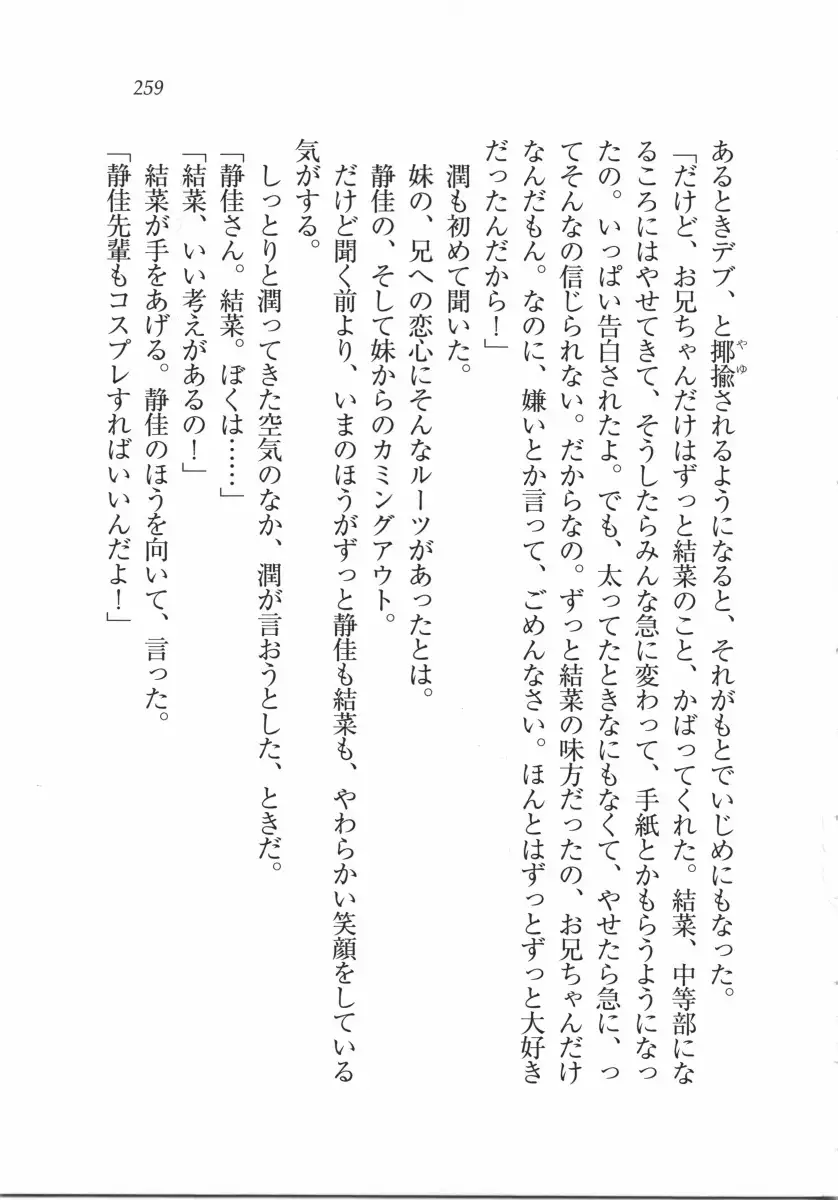 259
あるときデブ、と揶揄されるようになると、それがもとでいじめにもなった。
「だけど、お兄ちゃんだけはずっと結菜のこと、かばってくれた。結菜、中等部にな
るころにはやせてきて、そうしたらみんな急に変わって、手紙とかもらうようになっ
たの。いっぱい告白されたよ。でも、太ってたときなにもなくて、やせたら急に、っ
てそんなの信じられない。だからなの。ずっと結菜の味方だったの、お兄ちゃんだけ
なんだもん。なのに、嫌いとか言って、ごめんなさい。ほんとはずっとずっと大好き
だったんだから！」
潤も初めて聞いた。
妹の、兄への恋心にそんなルーツがあったとは。
静佳の、そして妹からのカミングアウト。
だけど聞く前より、いまのほうがずっと静佳も結菜も、やわらかい笑顔をしている
気がする。
しっとりと潤ってきた空気のなか、潤が言おうとした、ときだ。
「静佳さん。結菜。ぼくは……」
「結菜、いい考えがあるの！」
結菜が手をあげる。静佳のほうを向いて、言った。
「静佳先輩もコスプレすればいいんだよ！」